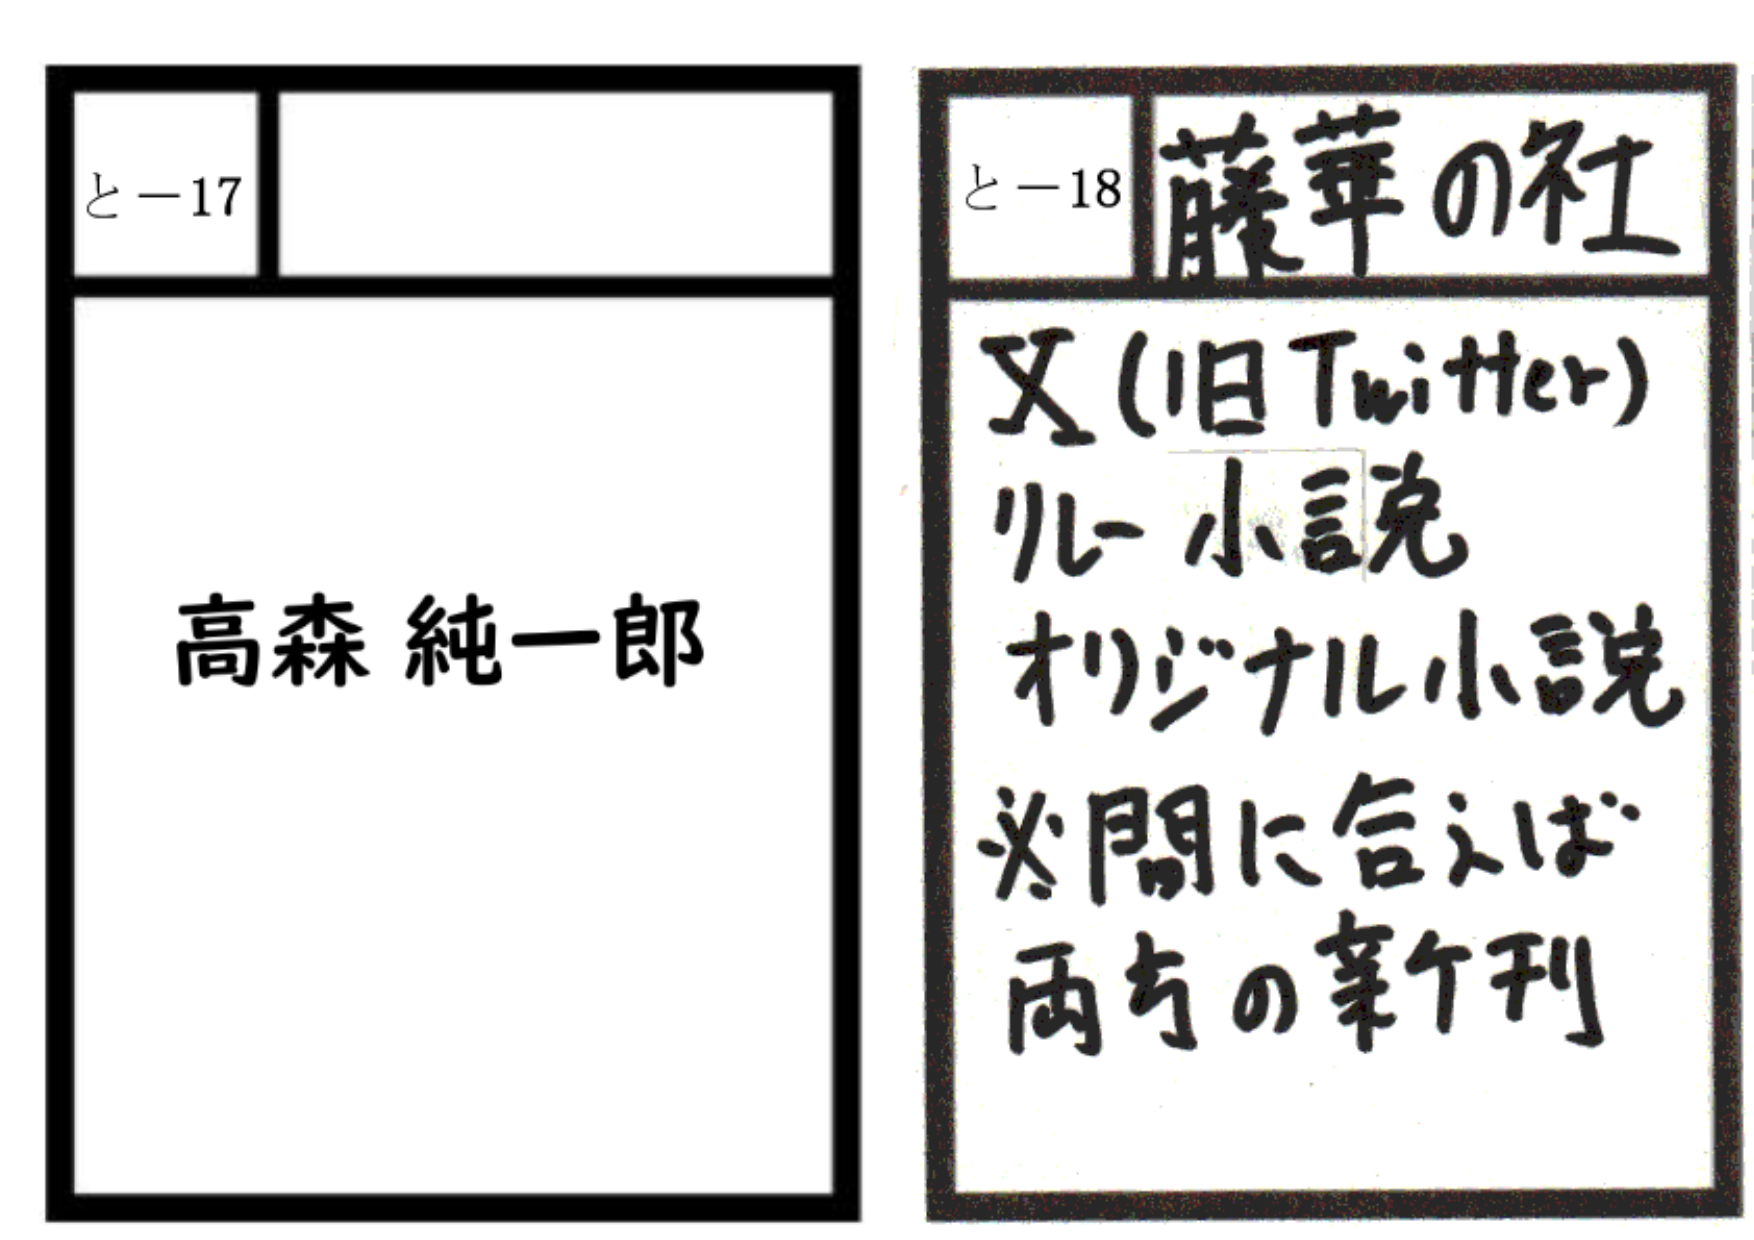 と－17
高森 純一郎
と－18
藤華の社
X(旧Twitter)
リレー小説
オリジナル小説
※間に合えば
両方の新刊